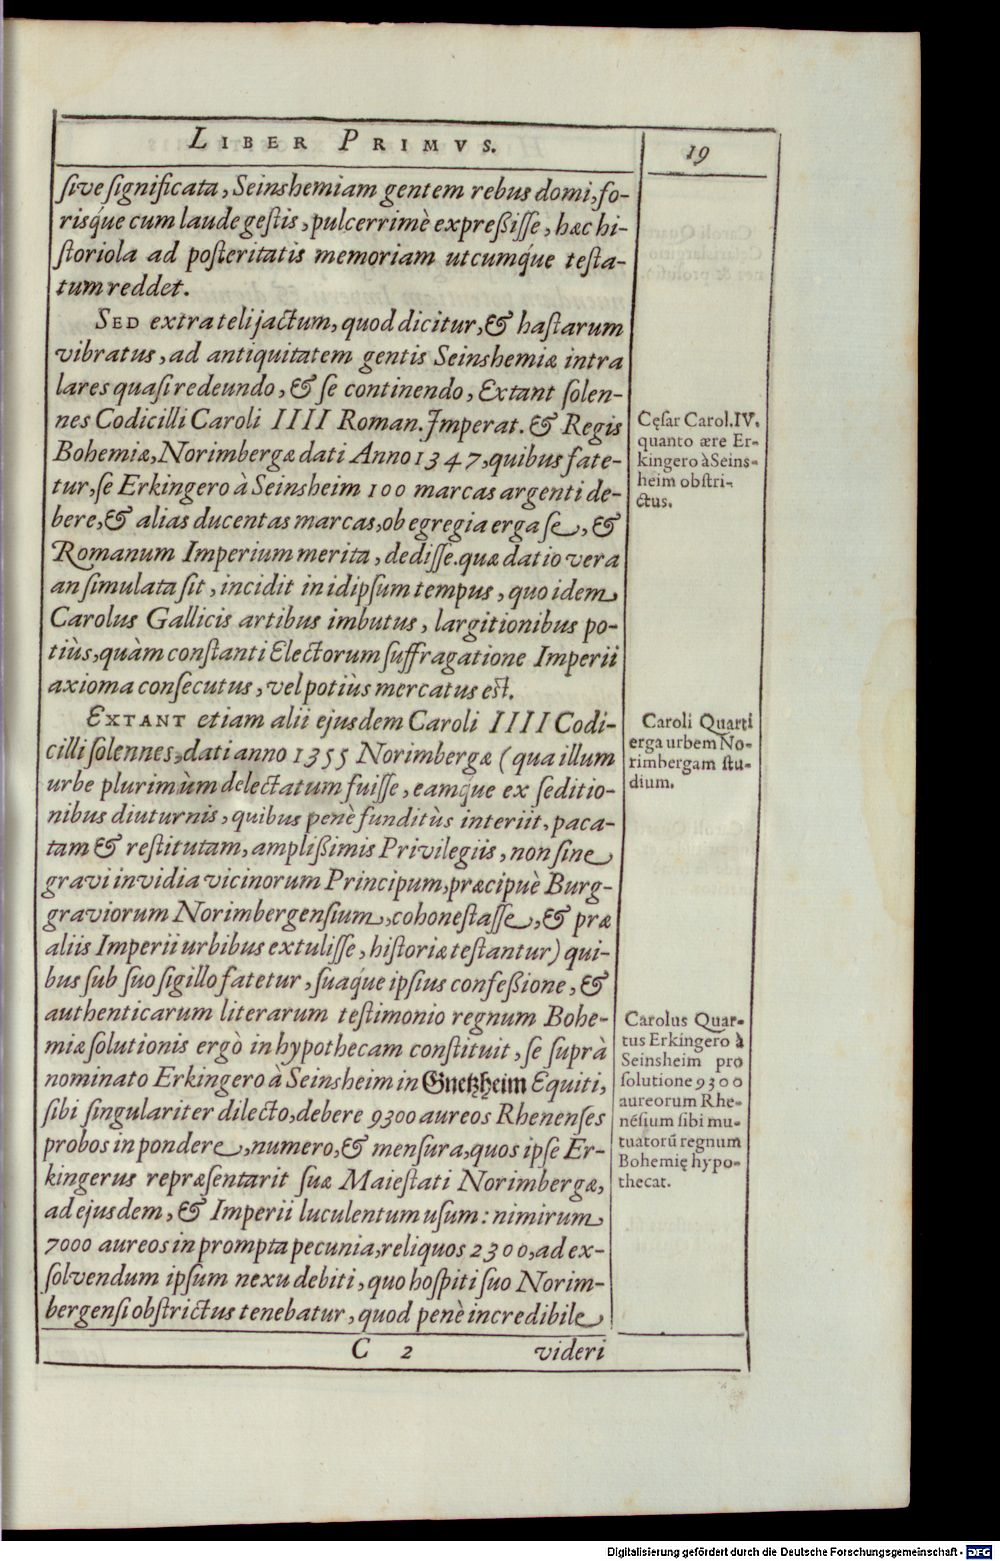 LIBER PRIMVS.
19
sive significata, Seinshemiam gentem rebus domi, fo-
risq́ue cum laude gestis, pulcerrimè expreßisse, hæc hi-
storiola ad posteritatis memoriam utcumq́ue testa-
tum reddet.
SED extra teli jactum, quod dicitur, & hastarum
vibratus, ad antiquitatem gentis Seinshemiæ intra
lares quasi redeundo, & se continendo, Extant solen-
nes Codicilli Caroli IIII Roman. Imperat. & Regis
Bohemiæ, Norimbergæ dati Anno 1347, quibus fate-
tur, se Erkingero à Seinsheim 100 marcas argenti de-
bere, & alias ducentas marcas, ob egregia erga se, &
Romanum Imperium merita, dedisse. quæ datio vera
an simulata sit, incidit in id ipsum tempus, quo idem
Carolus Gallicis artibus imbutus, largitionibus po-
tiùs, quàm constanti Electorum suffragatione Imperii
axioma consecutus, vel potiùs mercatus est.
Cęsar Carol. IV.
quanto ære Er-
kingero à Seins-
heim obstri-
ctus.
EXTANT etiam alii ejusdem Caroli IIII Codi-
cilli solennes, dati anno 1355 Norimbergæ (qua illum
urbe plurimùm delectatum fuisse, eamque ex seditio-
nibus diuturnis, quibus penè funditùs interiit, paca-
tam & restitutam, amplißimis Privilegiis, non sine
gravi invidia vicinorum Principum, præcipuè Burg-
graviorum Norimbergensium, cohonestasse, & præ
aliis Imperii urbibus extulisse, historiæ testantur) qui-
bus sub suo sigillo fatetur, suaq́ue ipsius confeßione, &
authenticarum literarum testimonio regnum Bohe-
miæ solutionis ergò in hypothecam constituit, se suprà
nominato Erkingero à Seinsheim in Gnetzheim Equiti,
sibi singulariter dilecto, debere 9300 aureos Rhenenses
probos in pondere, numero, & mensura, quos ipse Er-
kingerus repræsentarit suæ Maiestati Norimbergæ,
ad ejusdem, & Imperii luculentum usum: nimirum
7000 aureos in prompta pecunia, reliquos 2300, ad ex-
solvendum ipsum nexu debiti, quo hospiti suo Norim-
bergensi obstrictus tenebatur, quod penè incredibile
Caroli Quarti
erga urbem No-
rimbergam stu-
dium.
Carolus Quar-
tus Erkingero à
Seinsheim pro
solutione 9300
aureorum Rhe-
nēsium sibi mu-
tuatorũ regnum
Bohemię hypo-
thecat.
C 2
videri
Digitalisierung gefördert durch die Deutsche Forschungsgemeinschaft - DFG